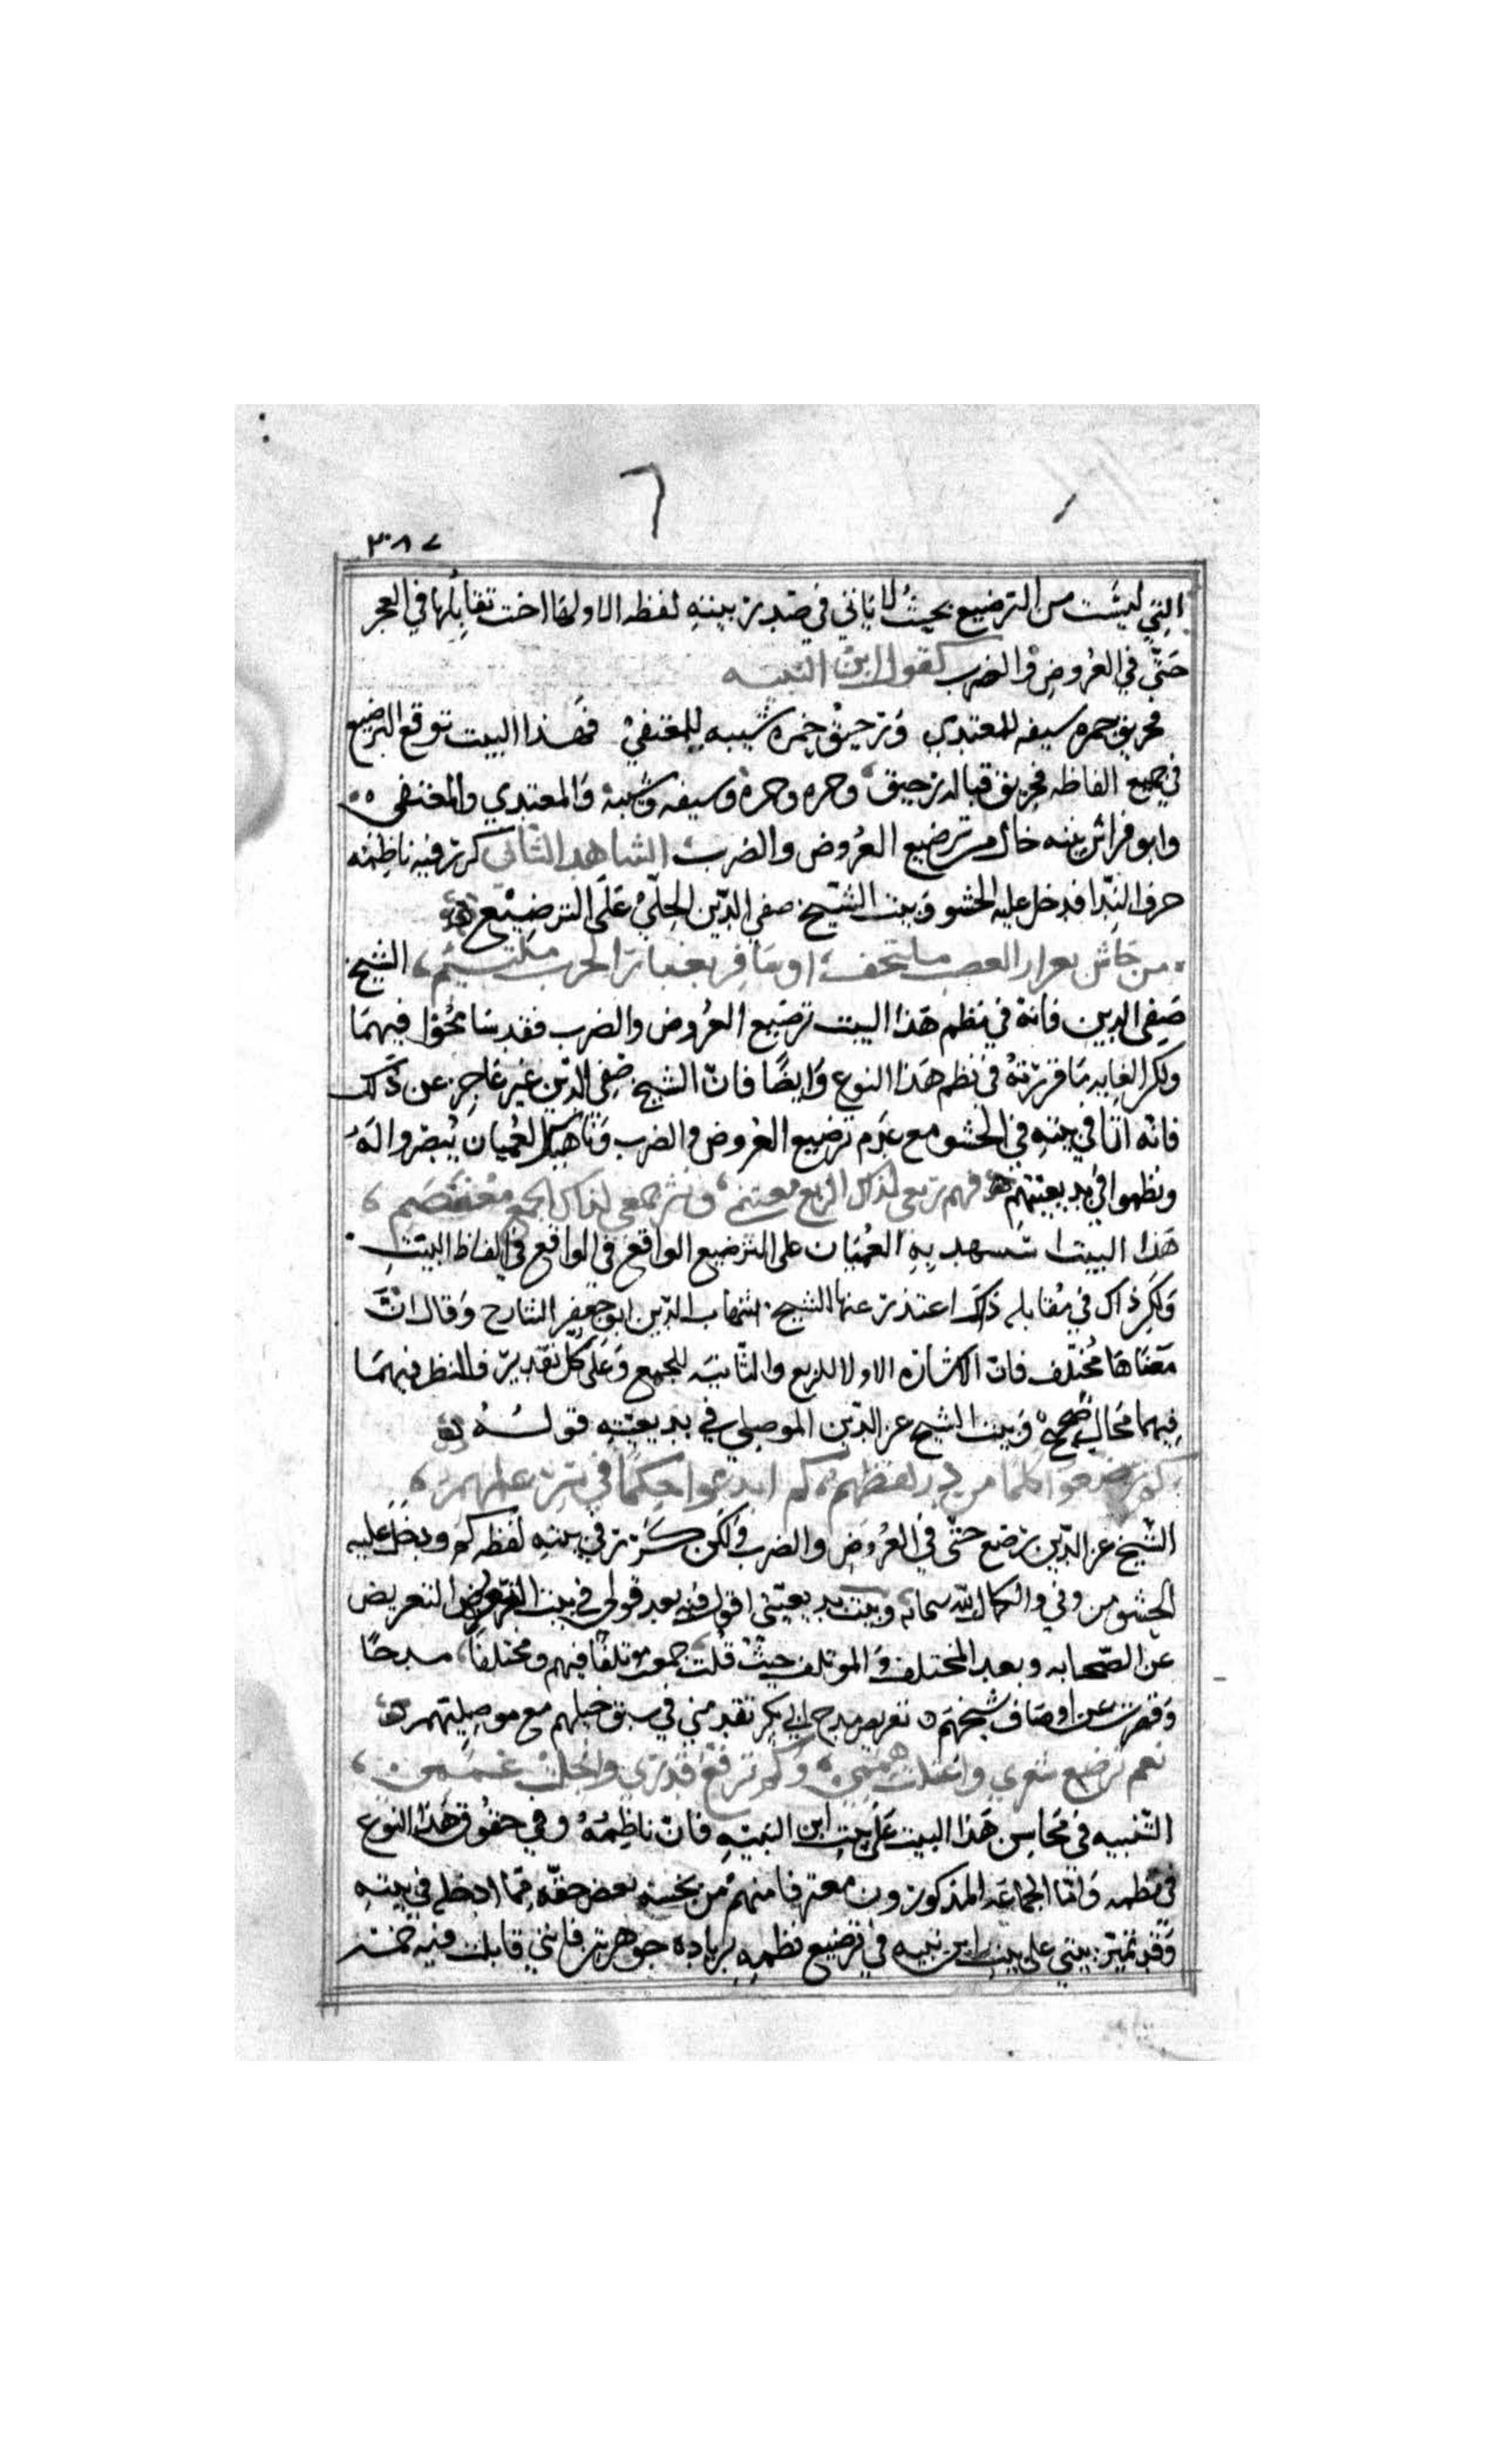 ٣٠٨٧
التي ليست من الترضيع بحيث لا ياتي في صدر بيته لفظه الا ولها اخت تقابلها في العجز
حتى في العروض والضرب كقول ابن النبيه
فحريق جمره سيفه للمعتدي ورحيق خمره شيبه للمعتفي فهذا البيت توقع الترضيع
في جميع الفاظه فحريق قبالد رحيق وجمره وخمره وسيفه وشيبه والمعتدي والمعتفي
وابو فراس بيته خال من ترضيع العروض والضرب الشاهد الثاني كرر فيه ناظمه
حرف الندا فدخل عليه الحشو وبيت الشيخ صفي الدين الحلي على الترضيع
من حاش بغرار العضب ملتحف او سافر بغبار الحرب ملتثم الشيخ
صفي الدين فاته في نظم هذا البيت ترضيع العروض والضرب فقد سامحوا فيهما
ولكن الغايه ما قررته في نظم هذا النوع وايضا فان الشيخ صفي الدين غير عاجز عن ذلك
فانه اتا في بيته في الحشو مع عدم ترضيع العروض والضرب وتاهيك العميان يبصروا له
ونظموا في بديعيتهم فهم ترعى لذاك الربع مغتنم ونثر جمعي لذاك الجمع معتصم
هذا البيت استشهد به العميان على الترضيع الواقع في الواقع في الفاظ البيت
ولكن ذاك في مقابله ذاك اعتذر عنها الشيخ شهاب الدين ابو جعفر الشارح وقال ان
معناها مختلف فان الاشاره الاولا للربع والثانيه للجمع وعلى كل تقدير فالنظر فيهما
فيهما محال صحيح وبيت الشيخ عز الدين الموصلي في بديعيته قوله
كم رضعوا كلما من در لفظهم كم ابدعوا حكما في سر علمهم
الشيخ عز الدين رضع حتى في العروض والضرب ولكن كرر في بيته لفظه كم ودخل عليه
الحشو من وفي والكمال لله سبحانه وبيت بديعيتي اقول فيه بعد قولي في بيت التعريض
عن الصحابه وبعد المختلف والموتلف حيث قلت جمعت موتلفا فيهم ومختلفا مدحا
وقصرت عن اوصاف شيخهم تعريض مدح ابي بكر تقدمني في سبق خيلهم مع موصليهم
نعم ترضيع شعري واعتلت هممي وكم ترفع قدري وانجلت غممي
التنبيه في محاسن هذا البيت على بيت ابن النبيه فان ناظمه وفي حقوق هذا النوع
في نظمه واما الجماعه المذكورون معترفا منهم من بخسه بعض حقه مما ادخله في بيته
وقد تميز بيتي على بيت ابن نبيه في ترضيع نظمه بزياده جوهرتين فانني قابلت فيه خمسه